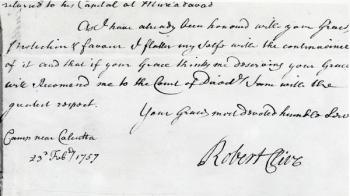 returned to his Capital at Muxadavad
As I have already been honoured with your Graces
protection & favour I flatter my self with the continuance
of it and that if your Grace thinks me deserving your Grace
will recomend me to the Court of Directrs I am with the
greatest respect.
Your Graces most devoted humble Serv
Camp near Calcutta
23d Febry 1757
Robert Clive